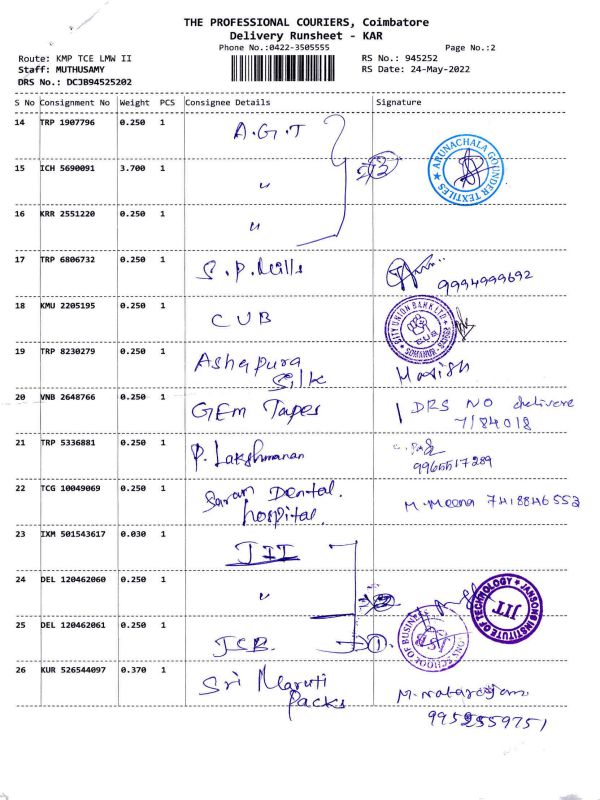 THE PROFESSIONAL COURIERS, Coimbatore
Delivery Runsheet - KAR
Phone No.:0422-3505555 Page No.:2
Route: KMP TCE LMW II RS No.: 945252
Staff: MUTHUSAMY RS Date: 24-May-2022
DRS No.: DCJB94525202
S No Consignment No Weight PCS Consignee Details Signature
14 TRP 1907796 0.250 1 A.G.T
15 ICH 5690091 3.700 1 " ARUNACHALA GOUNDER TEXTILES
16 KRR 2551220 0.250 1 "
17 TRP 6806732 0.250 1 S.P.Mills 9994999692
18 KMU 2205195 0.250 1 CUB CITY UNION BANK LTD. CUB
19 TRP 8230279 0.250 1 Ashapura
Silk
20 VNB 2648766 0.250 1 GEm Tapes DRS NO delivere
7/84018
21 TRP 5336881 0.250 1 P. Lakshmanan
9965517289
22 TCG 10049069 0.250 1 Saran Dental.
hospital. M.Meena 7418846552
23 IXM 501543617 0.030 1 JIT
24 DEL 120462060 0.250 1 " JANSONS INSTITUTE OF TECHNOLOGY JIT
25 DEL 120462061 0.250 1 JSB 1 SCHOOL OF BUSIN
26 KUR 526544097 0.370 1 Sri Maruti
Packs M.natarajan
9952559751